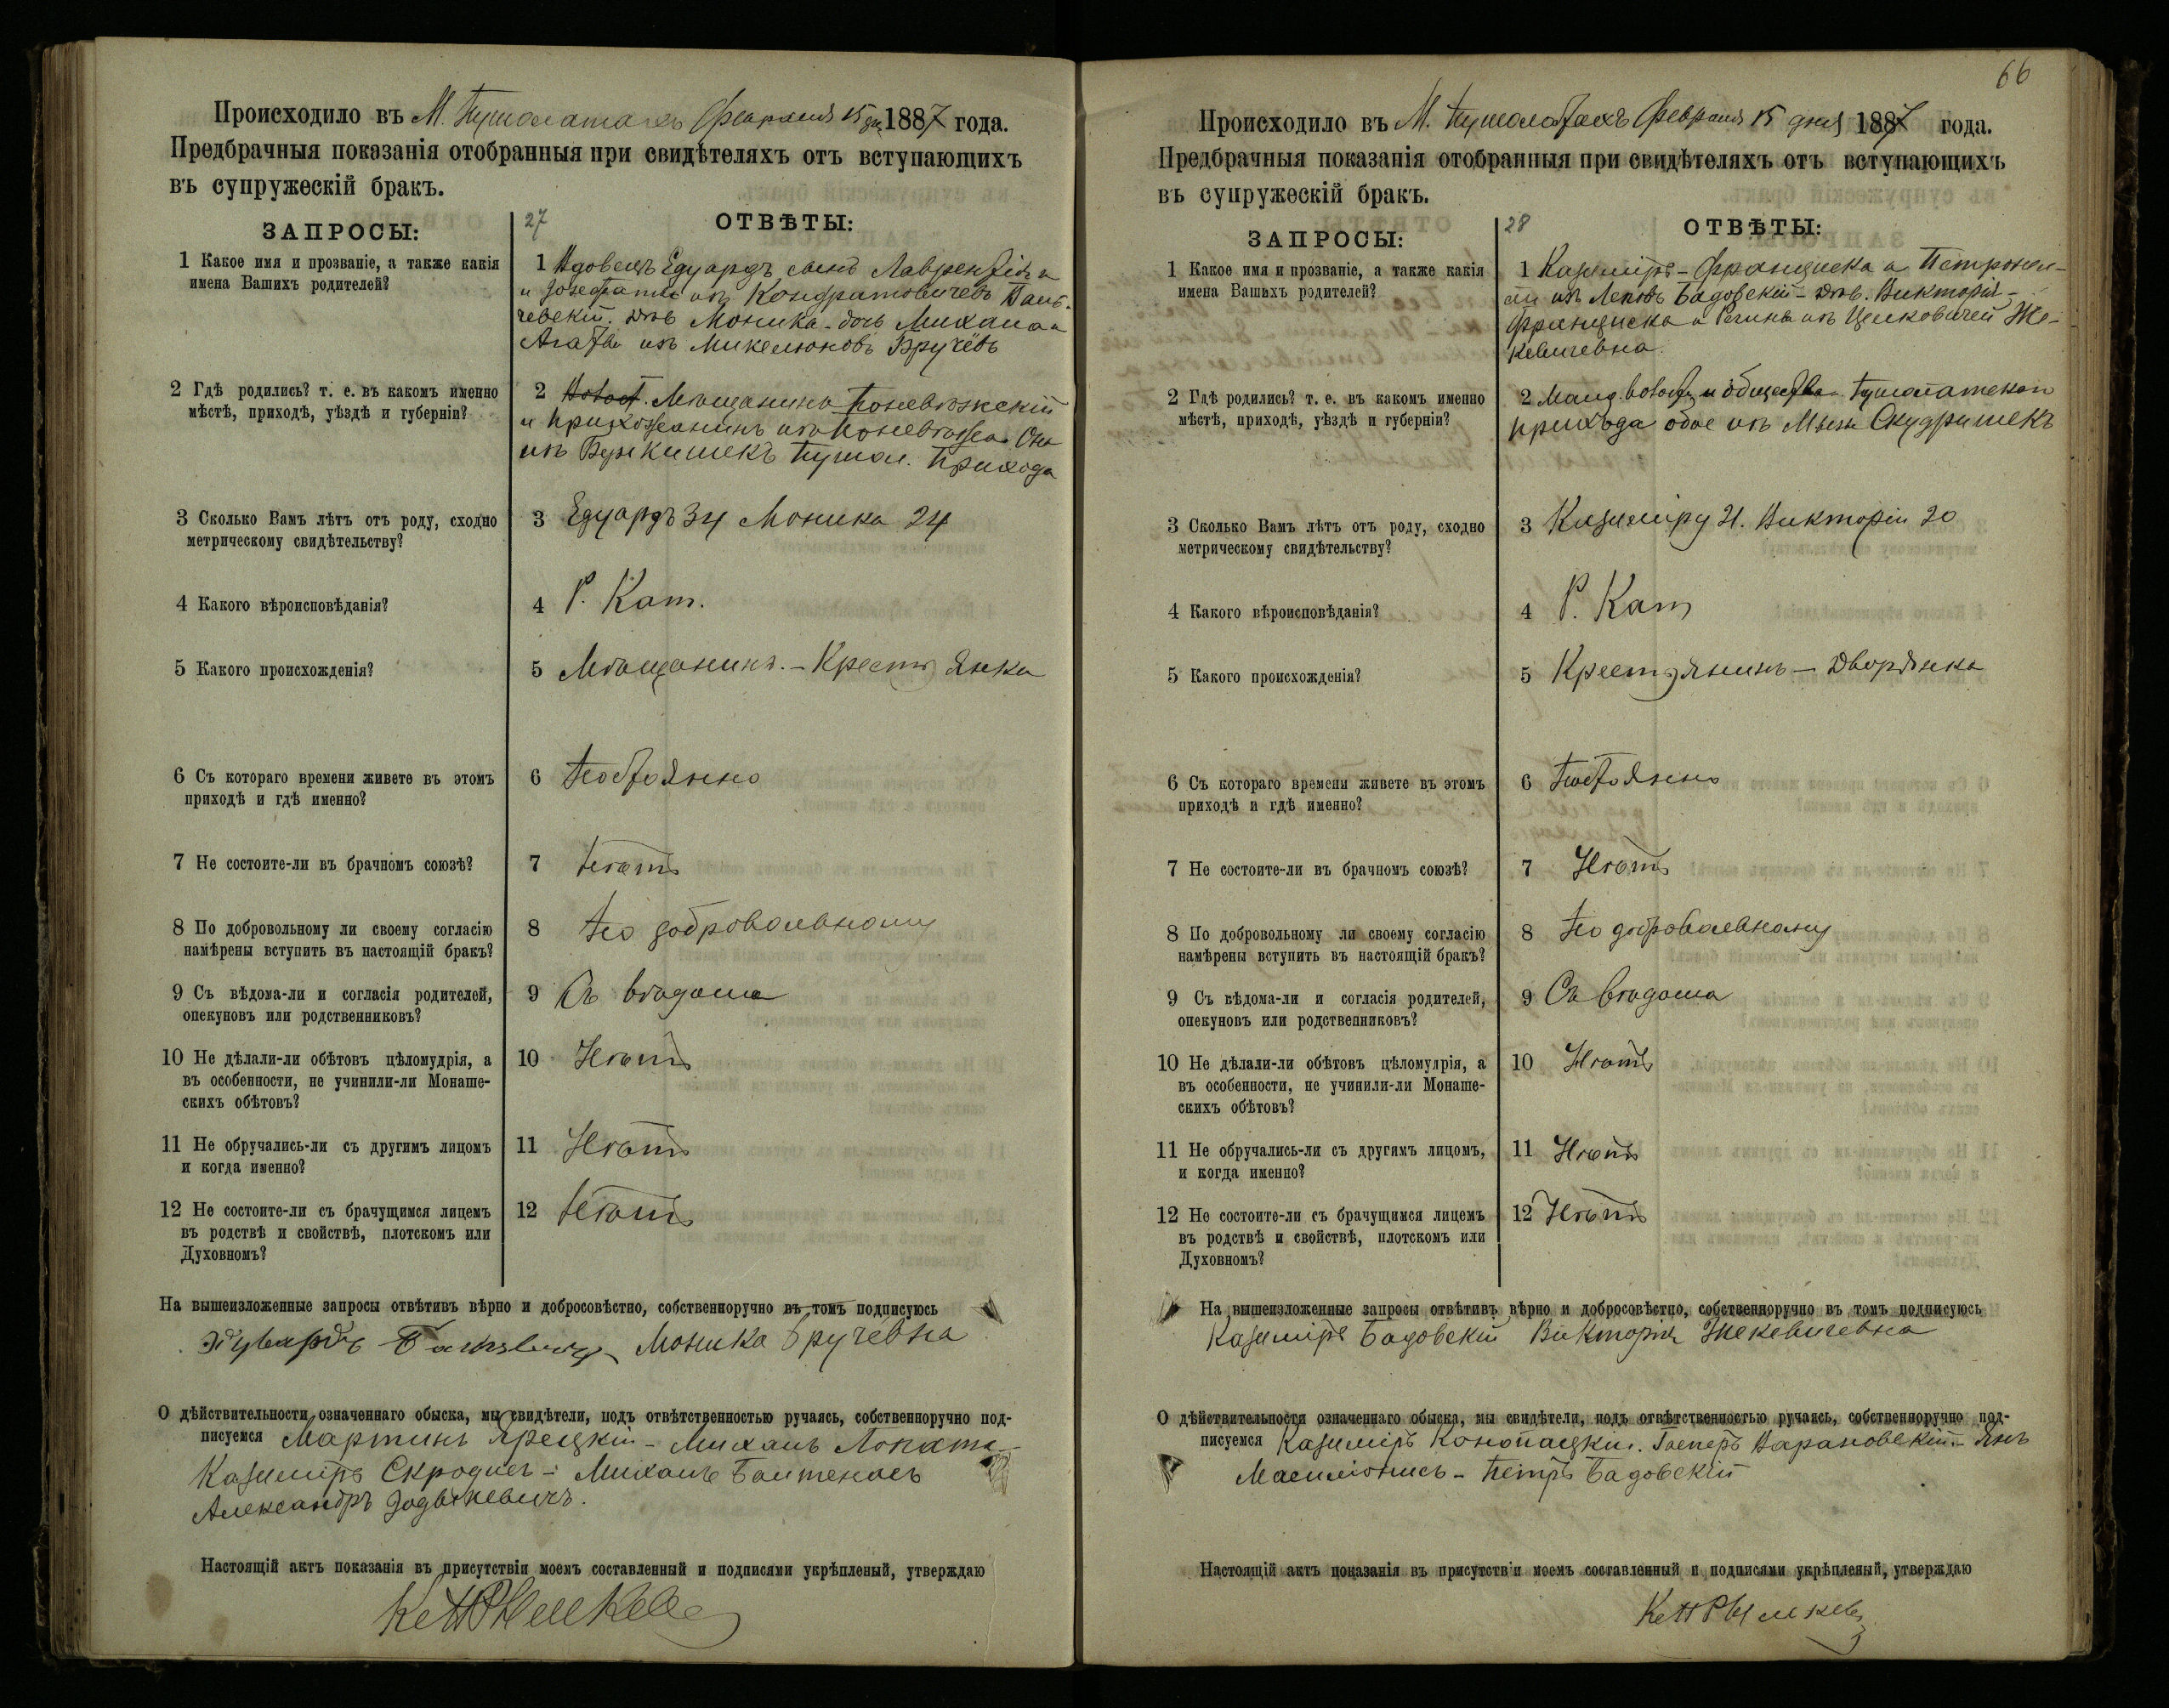 Происходило въ М. Пушолатахъ Февраля 15 дня 1887 года.
Предбрачныя показанія отобранныя при свидѣтеляхъ отъ вступающихъ
въ супружескій бракъ.
ЗАПРОСЫ:
27
ОТВѢТЫ:
1 Какое имя и прозваніе, а также какія
имена Вашихъ родителей?
1 Вдовецъ Едуардъ сынъ Лаврентія
и Іозефаты изъ Кондратовичевъ
Моника дочь Михаила и
Агаты изъ Микелюновъ
2 Гдѣ родились? т. е. въ какомъ именно
мѣстѣ, приходѣ, уѣздѣ и губерніи?
2 Мѣщанинъ Поневѣжскій
и прихожанинъ изъ Поневѣжа. Она
изъ Пушол. Прихода
3 Сколько Вамъ лѣтъ отъ роду, сходно
метрическому свидѣтельству?
3 Едуардъ 34 Моника 24
4 Какого вѣроисповѣданія?
4 Р. Кат.
5 Какого происхожденія?
5 Мѣщанинъ. – Крестьянка
6 Съ котораго времени живете въ этомъ
приходѣ и гдѣ именно?
6 Постоянно
7 Не состоите-ли въ брачномъ союзѣ?
7 Нѣтъ
8 По добровольному ли своему согласію
намѣрены вступить въ настоящій бракъ?
8 По добровольному
9 Съ вѣдома-ли и согласія родителей,
опекуновъ или родственниковъ?
9 Съ вѣдома
10 Не дѣлали-ли обѣтовъ цѣломудрія, а
въ особенности, не учинили-ли Монаше-
скихъ обѣтовъ?
10 Нѣтъ
11 Не обручались-ли съ другимъ лицомъ
и когда именно?
11 Нѣтъ
12 Не состоите-ли съ брачущимся лицемъ
въ родствѣ и свойствѣ, плотскомъ или
Духовномъ?
12 Нѣтъ
На вышеизложенные запросы отвѣтивъ вѣрно и добросовѣстно, собственноручно въ томъ подписуюсь
Моника Бручёвна
О дѣйствительности означеннаго обыска, мы свидѣтели, подъ отвѣтственностью ручаясь, собственноручно под-
писуемся Мартинъ Ярецкій – Михаилъ
Казиміръ – Михаилъ
Александръ
Настоящій актъ показанія въ присутствіи моемъ составленный и подписями укрѣпленый, утверждаю
66
Происходило въ М. Пушолатахъ Февраля 15 дня 1887 года.
Предбрачныя показанія отобранныя при свидѣтеляхъ отъ вступающихъ
въ супружескій бракъ.
ЗАПРОСЫ:
28
ОТВѢТЫ:
1 Какое имя и прозваніе, а также какія
имена Вашихъ родителей?
1 Казиміръ – Франциска и Петронел-
ли изъ Бадовскій – Дѣв. Викторія –
Франциска и Регины изъ Же-
кевичевна.
2 Гдѣ родились? т. е. въ какомъ именно
мѣстѣ, приходѣ, уѣздѣ и губерніи?
2 общества Пушолатскаго
прихода обое изъ
3 Сколько Вамъ лѣтъ отъ роду, сходно
метрическому свидѣтельству?
3 Казиміру 21. Викторіи 20
4 Какого вѣроисповѣданія?
4 Р. Кат
5 Какого происхожденія?
5 Крестьянинъ – Дворянка
6 Съ котораго времени живете въ этомъ
приходѣ и гдѣ именно?
6 Постоянно
7 Не состоите-ли въ брачномъ союзѣ?
7 Нѣтъ
8 По добровольному ли своему согласію
намѣрены вступить въ настоящій бракъ?
8 По добровольному
9 Съ вѣдома-ли и согласія родителей,
опекуновъ или родственниковъ?
9 Съ вѣдома
10 Не дѣлали-ли обѣтовъ цѣломудрія, а
въ особенности, не учинили-ли Монаше-
скихъ обѣтовъ?
10 Нѣтъ
11 Не обручались-ли съ другимъ лицомъ,
и когда именно?
11 Нѣтъ
12 Не состоите-ли съ брачущимся лицемъ
въ родствѣ и свойствѣ, плотскомъ или
Духовномъ?
12 Нѣтъ
На вышеизложенные запросы отвѣтивъ вѣрно и добросовѣстно, собственноручно въ томъ подписуюсь
Казиміръ Бадовскій Викторія Жекевичевна
О дѣйствительности означеннаго обыска, мы свидѣтели, подъ отвѣтственностью ручаясь, собственноручно под-
писуемся Казиміръ Конопацкій. Гасперъ Барановскій – Янъ
Петръ Бадовскій
Настоящій актъ показанія въ присутствіи моемъ составленный и подписями укрѣпленый, утверждаю